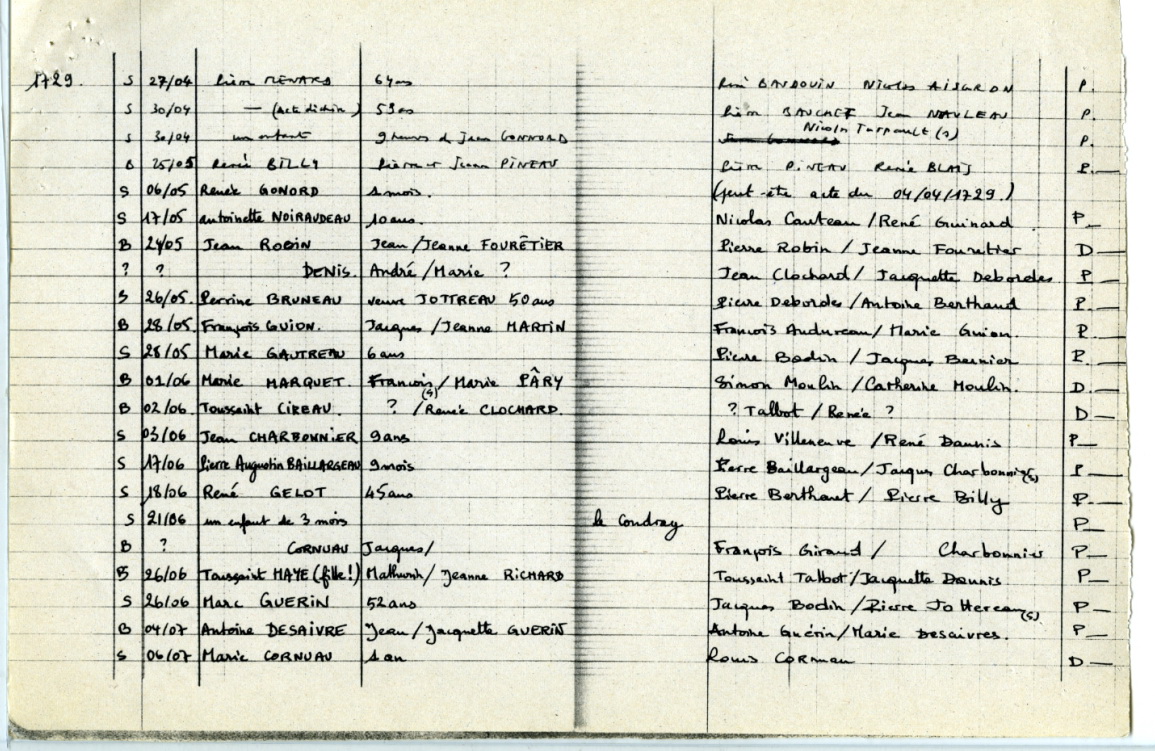 1729. S 27/04 Pierre MENARD 64 ans René BAUDOUIN Nicolas AISGRON P.
S 30/04 — (acte déchiré) 53 ans Pierre BAUCHET Jean NAULEAU P.
S 30/04 un enfant 9 heures d Jean GONNORD Nicolas Turpault (s) P.
B 25/05 René BILLY Pierre et Jeanne PINEAU Pierre PINEAU Renée BLAIS P.—
S 06/05 Renée GONORD 1 mois. (peut-être acte du 04/04/1729.)
S 17/05 antoinette NOIRAUDEAU 10 ans. Nicolas Cauteau / René Guinard P—
B 24/05 Jean ROBIN Jean/Jeanne FOURÊTIER Pierre Robin / Jeanne Fouretier D—
? ? DENIS. André/Marie ? Jean Clochard / Jacquette Debordes P.
S 26/05. Perrine BRUNEAU veuve JOTTREAU 50 ans Pierre Debordes / Antoine Berthaud P.
B 28/05. François GUION. Jacques/Jeanne MARTIN François Andureau / Marie Guion. P.
S 28/05 Marie GAUTREAU 6 ans Pierre Bodin / Jacques Bernier P.
B 01/06 Marie MARQUET. François(s) / Marie PÂRY Simon Moulin / Catherine Moulin. D.—
B 02/06. Toussaint CIREAU. ? /Renée CLOCHARD. ? Talbot / Renée ? D—
S 03/06 Jean CHARBONNIER 9 ans Louis Villeneuve / René Daunis P—
S 17/06 Pierre Augustin BAILLARGEAU 9 mois Pierre Baillargeau / Jacques Charbonnier(s) P—
S 18/06 René GELOT 45 ans Pierre Berthaut / Pierre Billy P.—
S 21/06 un enfant de 3 mois le Coudray P—
B ? CORNUAU Jacques/ François Giraud / Charbonnier P—
B 26/06 Toussaint MAYE (fille!) Mathurin / Jeanne RICHARD Toussaint Talbot / Jacquette Daunis P—
S 26/06 Marc GUERIN 52 ans Jacques Bodin / Pierre Jottereau(s) P—
B 04/07 Antoine DESAIVRE Jean / Jacquette GUERIN Antoine Guérin / Marie Desaivres. P—
S 06/07 Marie CORNUAU 1 an Louis Cornuau D—